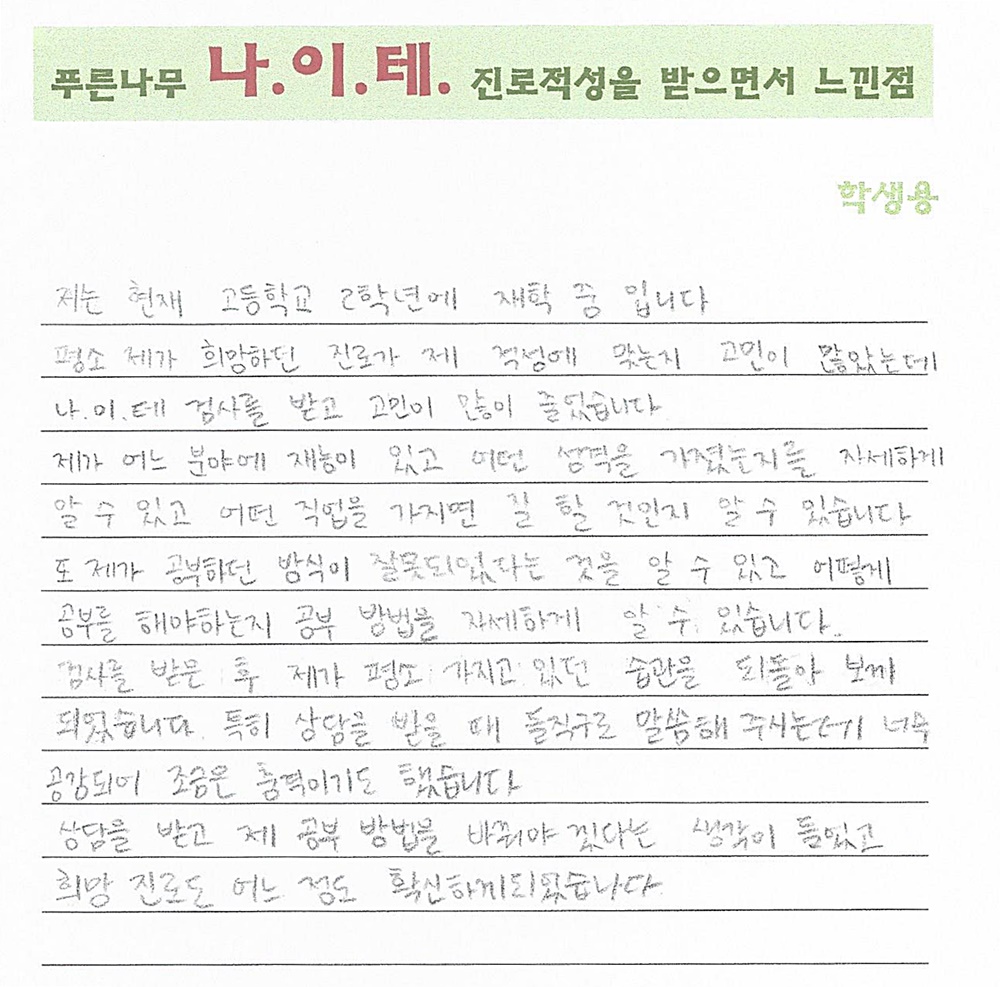 푸른나무 나.이.테. 진로적성을 받으면서 느낀점
학생용
저는 현재 고등학교 2학년에 재학 중 입니다
평소 제가 희망하던 진로가 제 적성에 맞는지 고민이 많았는데
나.이.테 검사를 받고 고민이 많이 줄었습니다
제가 어느 분야에 재능이 있고 어떤 성격을 가졌는지를 자세하게
알 수 있고 어떤 직업을 가지면 잘 할 것인지 알 수 있습니다
또 제가 공부하던 방식이 잘못되었다는 것을 알 수 있고 어떻게
공부를 해야하는지 공부 방법을 자세하게 알 수 있습니다.
검사를 받은 후 제가 평소 가지고 있던 습관을 되돌아 보게
되었습니다. 특히 상담을 받을 때 돌직구로 말씀해 주시는데 너무
공감되어 조금은 충격이기도 했습니다
상담을 받고 제 공부 방법을 바꿔야 겠다는 생각이 들었고
희망 진로도 어느 정도 확신하게되었습니다.